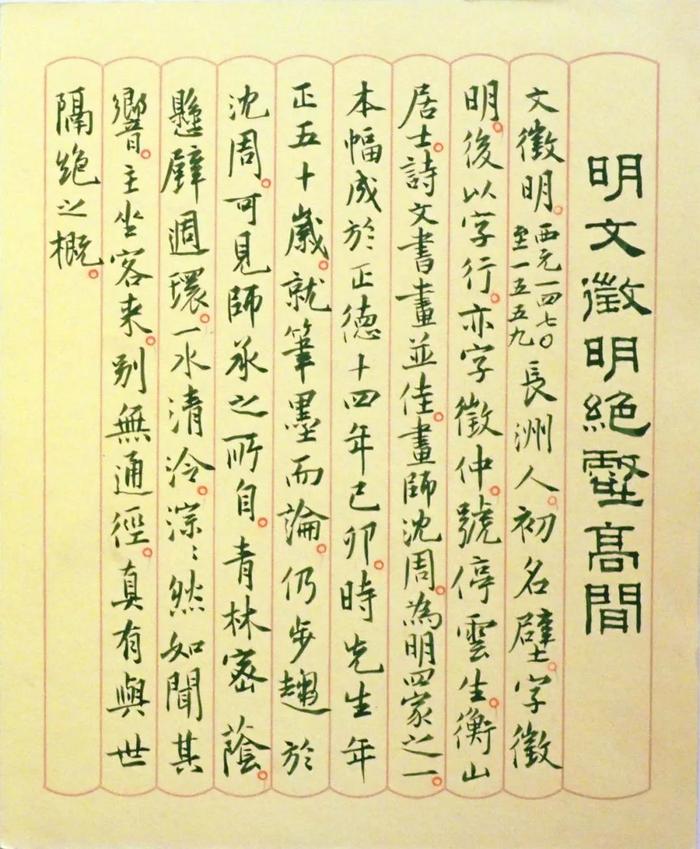 明文徵明絕壑高閒
文徵明。西元一四七〇至一五五九長洲人。初名壁。字徵
明。後以字行。亦字徵仲。號停雲生。衡山
居士。詩文書畫並佳。畫師沈周。為明四家之一。
本幅成於正德十四年己卯。時先生年
正五十歲。就筆墨而論。仍步趨於
沈周。可見師承之所自。青林密蔭。
懸壁迴環。一水清泠。淙〻然如聞其
響。主坐客來。別無通徑。真有與世
隔絕之概。